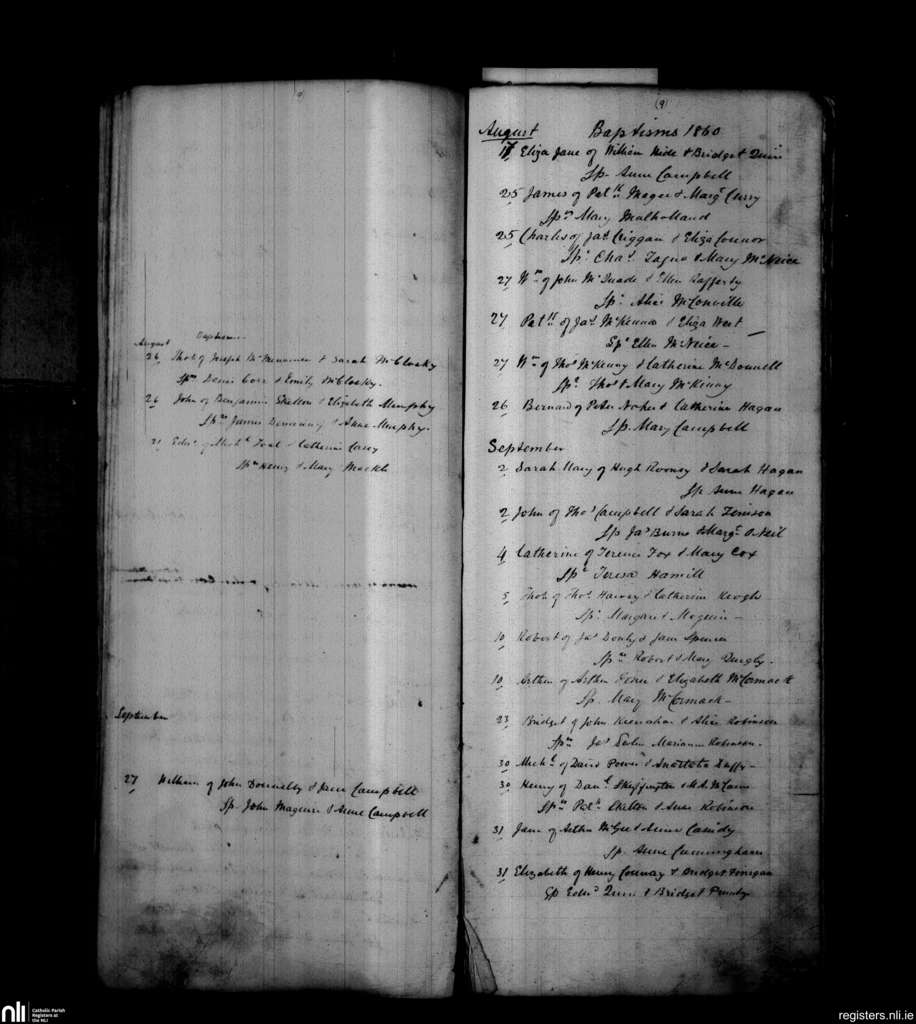 Baptisms
August
26 Thos. of Joseph McMenamin & Sarah McClosky
Sprs Denis Corr & Emily McClosky.
26 John of Benjamin Skelton & Elizabeth Murphy
Sprs James & Anne Murphy.
21 Edwd. of Michl. & Catherine Casey
Sprs Henry & Mary
September
27 William of John Donnelly & Jane Campbell
Sp. John Maguire & Anne Campbell
(9)
August Baptisms 1860
17 Eliza Jane of William & Bridget Quin
Sp. Anne Campbell
25 James of Patk. Magee & Margt. Curry
Spr Mary Mulholland
25 Charles of Jas. Criggan & Eliza Connor
Sp. Chas. & Mary McNeice
27 Wm. of John McQuade & Ellen Rafferty
Sp. Alice McConville
27 Patk. of Jas. McKenna & Eliza West
Sp. Ellen McNeice
27 Wm. of Thos. McKenny & Catherine McDonnell
Sp. Thos. & Mary McKenny
26 Bernard of Peter & Catherine Hagan
Sp. Mary Campbell
September
2 Sarah Mary of Hugh Rooney & Sarah Hagan
Sp. Anne Hagan
2 John of Thos. Campbell & Sarah Jenison
Sp. Jas. Burns & Margt. O Neil
4 Catherine of Terence Fox & Mary Cox
Sp. Teresa Hamill
5 Thos. of Thos. Harvey & Catherine Keogh
Sp. Margaret Maguire
10 Robert of Jas. & Jane Spencer
Sprs Robert & Mary
10 Arthur of Arthur & Elizabeth McCormack
Sp. Mary McCormack
23 Bridget of John & Alice Robinson
Sprs Jas. Marianne Robinson.
30 Michl. of David Power & Anastatia Duffy
30 Henry of Danl. Skeffington & M.A. McCann
Sprs Patk. Skelton & Anne Robinson
31 Jane of Arthur McGee & Anne Casidy
Sp. Anne Cunningham
31 Elizabeth of Henry Conway & Bridget Finigan
Sp. Edwd. Quin & Bridget
nli
Catholic Parish
Registers at
the NLI
registers.nli.ie